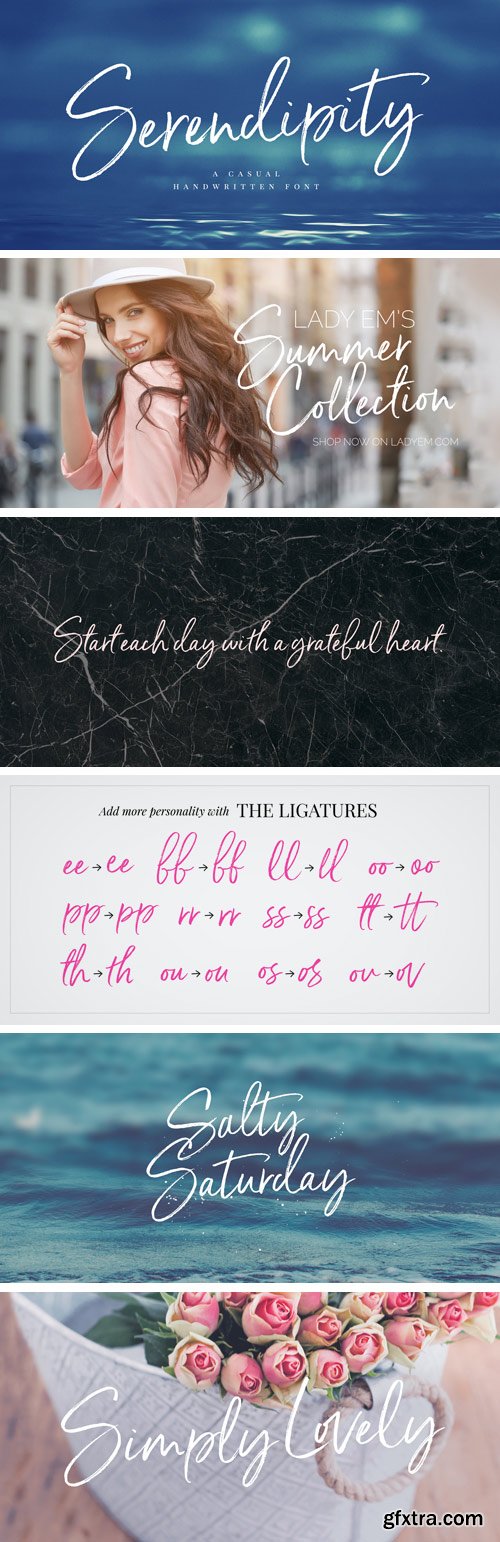 Serendipity
A CASUAL
HANDWRITTEN FONT
LADY EM'S
Summer
Collection
SHOP NOW ON LADYEM.COM
Start each day with a grateful heart.
Add more personality with THE LIGATURES
ee → ee ff → ff ll → ll oo → oo
pp → pp rr → rr ss → ss tt → tt
th → th ou → ou os → os ov → ov
Salty
Saturday
Simply Lovely
gfxtra.com